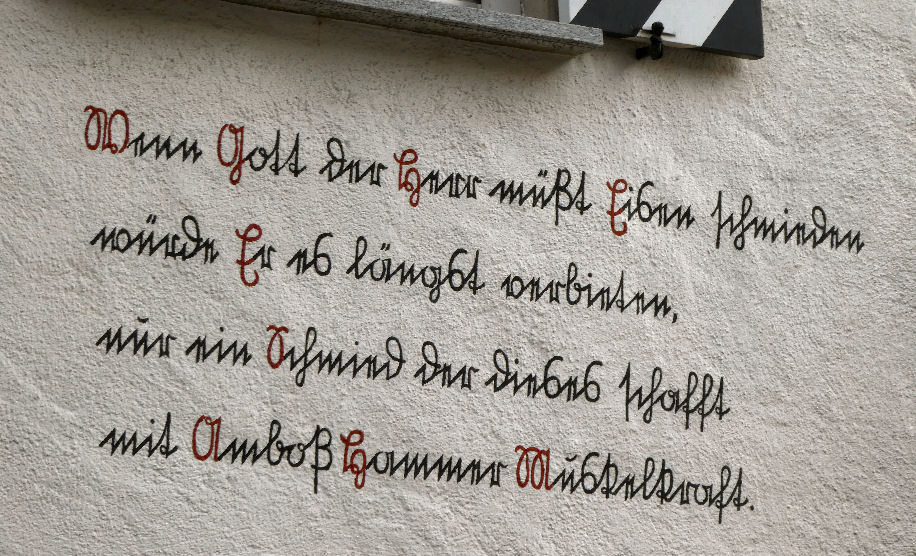 Wenn Gott der Herr müßt Eisen schmieden
würde Er es längst verbieten,
nur ein Schmied der dieses schafft
mit Amboß Hammer Muskelkraft.